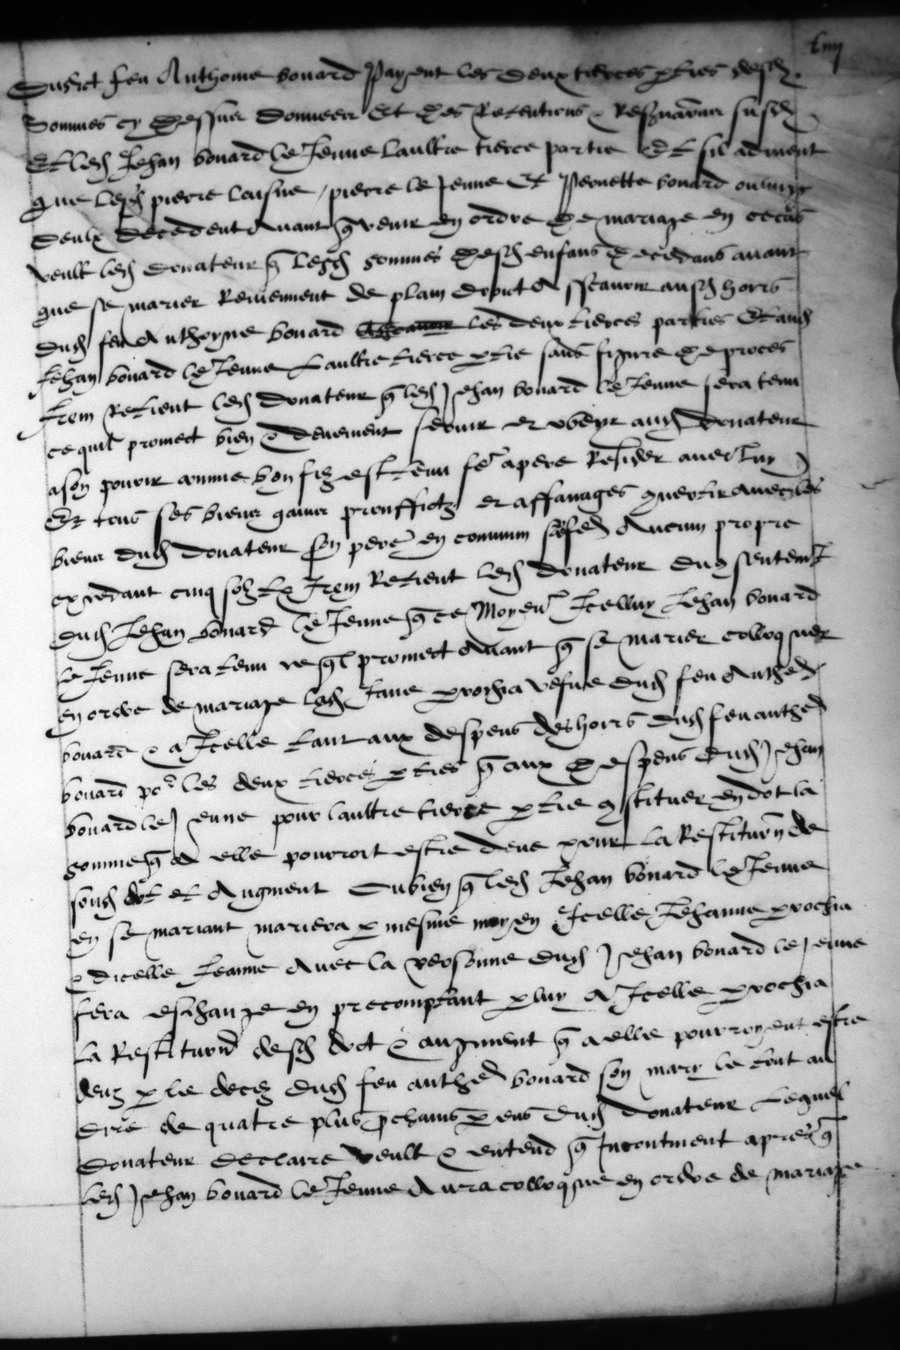 liiij
Dudict feu Anthoine bonard payent les deux tierces p̱ties desd
Sommes cy dessus donnees Et des Retentions & Res̱vations susd
Et led Jehan bonard le Jeune laultre tierce partie Et sil advient
que lesd pierre laisne / pierre le Jeune Et pernette bonard ou lung
deulx decedent avant q̄ venir en ordre de mariage en ce cas
veult led donateur q̄ lesd sommes desd enfans decedans avant
que se marier Reviennent de plain droict Assavoir ausd hoirs
dud feu Anthoyne bonard les deux tierces parties Et aud
Jehan bonard le Jeune Laultre tierce p̱tie sans figure de proces
Item Retient led donateur q̄ led Jehan bonard le Jeune sera tenu
ce quil promect bien & deuement servir et obeyr aud donateur
a son povoir comme bon filz est tenu a pere Resider avec luy
Et tous ses biens gaings prouffictz et affanages quertir avec les
biens dud donateur son pere en commun sans Aucun propre
excedant cinq solz Item Retient led donateur
dud Jehan bonard le Jeune q̄ ce moyen Icelluy Jehan bonard
le Jeune sera tenu ce ql promect Avant q̄ se marier colloquer
en ordre de mariage lad Jane vefve dud feu Anthe
bonard & a Icelle tant aux despens des hoirs dud feu anthe
bonard po les deux tierces p̱ties q̄ aux despens dud Jehan
bonard le Jeune pour laultre tierce p̱tie ꝯstituer en dot la
somme q̄ a elle pourroit estre deue pour La Restitution de
sond dot et Augment Ou bien q̄ led Jehan bonard le Jeune
en se mariant mariera p̱ mesme moyen Icelle Jehanne
& dicelle Jeanne Avec la personne dud Jehan bonard le Jeune
fera eschange en precomptant p̱ luy a Icelle
La Restitution desd dot & augment q̄ a elle pourroyent estre
deuz p̱ le deces dud feu anthe bonard son mary le tout au
dire de quatre plus p̱chains parens dud donateur Lequel
donateur declaire veult & entend q̄ Incontinent apres q̄
led Jehan bonard le Jeune Aura colloque en ordre de mariage